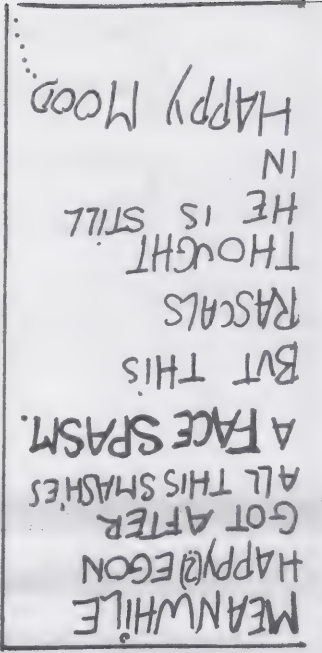 MEANWHILE
HAPPY(?) EGON
GOT AFTER
ALL THIS SMASHES
A FACE SPASM.
BUT THIS
RASCALS
THOUGHT
HE IS STILL
IN
HAPPY MOOD........